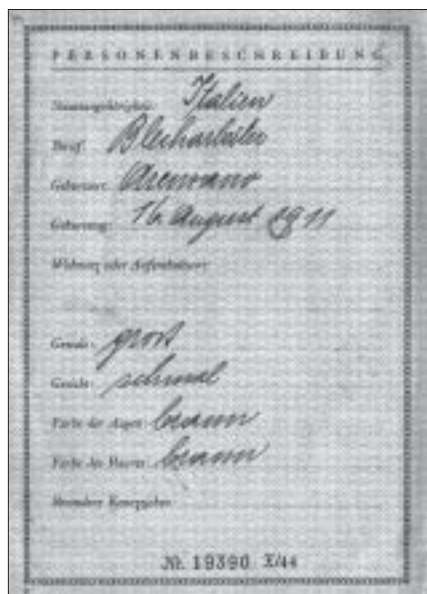 PERSONENBESCHREIBUNG
Staatsangehörigkeit: Italien
Beruf: Blecharbeiter
Geburtsort:
Geburtstag: 16 August 1911
Wohnung oder Aufenthaltsort:
Gestalt: gross
Gesicht: schmal
Farbe der Augen: braun
Farbe des Haares: braun
Besondere Kennzeichen:
Nr. 19390 X/44